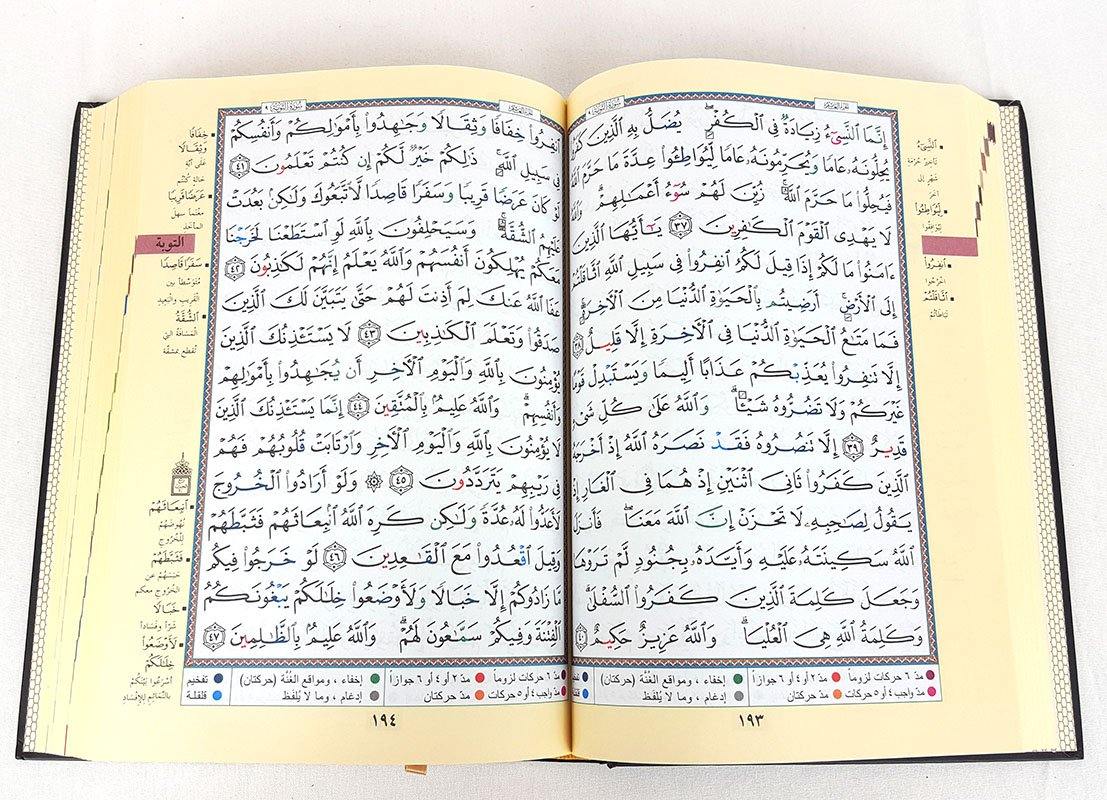 سورة التوبة ٩
إِنَّمَا ٱلنَّسِيٓءُ زِيَادَةٌ فِي ٱلْكُفْرِۖ يُضَلُّ بِهِ ٱلَّذِينَ
يُحِلُّونَهُۥ عَامًا وَيُحَرِّمُونَهُۥ عَامًا لِّيُوَاطِـُٔوا۟ عِدَّةَ مَا حَرَّمَ
فَيُحِلُّوا۟ مَا حَرَّمَ ٱللَّهُۚ زُيِّنَ لَهُمْ سُوٓءُ أَعْمَـٰلِهِمْۗ وَٱللَّهُ
لَا يَهْدِي ٱلْقَوْمَ ٱلْكَـٰفِرِينَ ٣٧ يَـٰٓأَيُّهَا ٱلَّذِينَ
ءَامَنُوا۟ مَا لَكُمْ إِذَا قِيلَ لَكُمُ ٱنفِرُوا۟ فِي سَبِيلِ ٱللَّهِ ٱثَّاقَلْتُمْ
إِلَى ٱلْأَرْضِۚ أَرَضِيتُم بِٱلْحَيَوٰةِ ٱلدُّنْيَا مِنَ ٱلْـَٔاخِرَةِۚ
فَمَا مَتَـٰعُ ٱلْحَيَوٰةِ ٱلدُّنْيَا فِي ٱلْـَٔاخِرَةِ إِلَّا قَلِيلٌ ٣٨
إِلَّا تَنفِرُوا۟ يُعَذِّبْكُمْ عَذَابًا أَلِيمًا وَيَسْتَبْدِلْ قَوْمًا
غَيْرَكُمْ وَلَا تَضُرُّوهُ شَيْـًٔاۗ وَٱللَّهُ عَلَىٰ كُلِّ شَىْءٍ
قَدِيرٌ ٣٩ إِلَّا تَنصُرُوهُ فَقَدْ نَصَرَهُ ٱللَّهُ إِذْ أَخْرَجَهُ
ٱلَّذِينَ كَفَرُوا۟ ثَانِيَ ٱثْنَيْنِ إِذْ هُمَا فِي ٱلْغَارِ إِذْ
يَقُولُ لِصَـٰحِبِهِۦ لَا تَحْزَنْ إِنَّ ٱللَّهَ مَعَنَاۖ فَأَنزَلَ
ٱللَّهُ سَكِينَتَهُۥ عَلَيْهِ وَأَيَّدَهُۥ بِجُنُودٍ لَّمْ تَرَوْهَا
وَجَعَلَ كَلِمَةَ ٱلَّذِينَ كَفَرُوا۟ ٱلسُّفْلَىٰۗ
وَكَلِمَةُ ٱللَّهِ هِيَ ٱلْعُلْيَاۗ وَٱللَّهُ عَزِيزٌ حَكِيمٌ ٤٠
النَّسِيءُ
تأخير حرمة
شهر إلى
آخر
لِّيُوَاطِئُوا
ليوافقوا
انفِرُوا
اخرجوا
اثَّاقَلْتُمْ
تباطأتم
مدّ ٦ حركات لزوماً مدّ ٢ أو ٤ أو ٦ جوازاً إخفاء ، ومواقع الغُنَّة (حركتان)
مدّ واجب ٤ أو ٥ حركات مدّ حركتان إدغام ، وما لا يُلفَظ
١٩٣
سورة التوبة ٩
ٱنفِرُوا۟ خِفَافًا وَثِقَالًا وَجَـٰهِدُوا۟ بِأَمْوَٰلِكُمْ وَأَنفُسِكُمْ
فِي سَبِيلِ ٱللَّهِۚ ذَٰلِكُمْ خَيْرٌ لَّكُمْ إِن كُنتُمْ تَعْلَمُونَ ٤١
لَوْ كَانَ عَرَضًا قَرِيبًا وَسَفَرًا قَاصِدًا لَّٱتَّبَعُوكَ وَلَـٰكِنۢ بَعُدَتْ
عَلَيْهِمُ ٱلشُّقَّةُۚ وَسَيَحْلِفُونَ بِٱللَّهِ لَوِ ٱسْتَطَعْنَا لَخَرَجْنَا
مَعَكُمْ يُهْلِكُونَ أَنفُسَهُمْ وَٱللَّهُ يَعْلَمُ إِنَّهُمْ لَكَـٰذِبُونَ ٤٢
عَفَا ٱللَّهُ عَنكَ لِمَ أَذِنتَ لَهُمْ حَتَّىٰ يَتَبَيَّنَ لَكَ ٱلَّذِينَ
صَدَقُوا۟ وَتَعْلَمَ ٱلْكَـٰذِبِينَ ٤٣ لَا يَسْتَـْٔذِنُكَ ٱلَّذِينَ
يُؤْمِنُونَ بِٱللَّهِ وَٱلْيَوْمِ ٱلْـَٔاخِرِ أَن يُجَـٰهِدُوا۟ بِأَمْوَٰلِهِمْ
وَأَنفُسِهِمْۗ وَٱللَّهُ عَلِيمٌۢ بِٱلْمُتَّقِينَ ٤٤ إِنَّمَا يَسْتَـْٔذِنُكَ ٱلَّذِينَ
لَا يُؤْمِنُونَ بِٱللَّهِ وَٱلْيَوْمِ ٱلْـَٔاخِرِ وَٱرْتَابَتْ قُلُوبُهُمْ فَهُمْ
فِي رَيْبِهِمْ يَتَرَدَّدُونَ ٤٥ ۞ وَلَوْ أَرَادُوا۟ ٱلْخُرُوجَ
لَأَعَدُّوا۟ لَهُۥ عُدَّةً وَلَـٰكِن كَرِهَ ٱللَّهُ ٱنۢبِعَاثَهُمْ فَثَبَّطَهُمْ
وَقِيلَ ٱقْعُدُوا۟ مَعَ ٱلْقَـٰعِدِينَ ٤٦ لَوْ خَرَجُوا۟ فِيكُم
مَّا زَادُوكُمْ إِلَّا خَبَالًا وَلَأَوْضَعُوا۟ خِلَـٰلَكُمْ يَبْغُونَكُمُ
ٱلْفِتْنَةَ وَفِيكُمْ سَمَّـٰعُونَ لَهُمْۗ وَٱللَّهُ عَلِيمٌۢ بِٱلظَّـٰلِمِينَ ٤٧
خِفَافًا
وَثِقَالًا
على أيّة
حالة كنتم
عَرَضًا قَرِيبًا
مغنماً سهل
المأخذ
التوبة
سَفَرًا قَاصِدًا
متوسّطاً بين
القريب والبعيد
الشُّقَّةُ
المسافة التي
تُقطع بمشقّة
انبِعَاثَهُمْ
نهوضهم
للخروج
فَثَبَّطَهُمْ
حبسهم عن
الخروج معكم
خَبَالًا
شرّاً وفساداً
لَأَوْضَعُوا
خِلَالَكُمْ
أسرعوا بينكم
بالنمائم للإفساد
مدّ ٦ حركات لزوماً مدّ ٢ أو ٤ أو ٦ جوازاً إخفاء ، ومواقع الغُنَّة (حركتان) تفخيم
مدّ واجب ٤ أو ٥ حركات مدّ حركتان إدغام ، وما لا يُلفَظ قلقلة
١٩٤